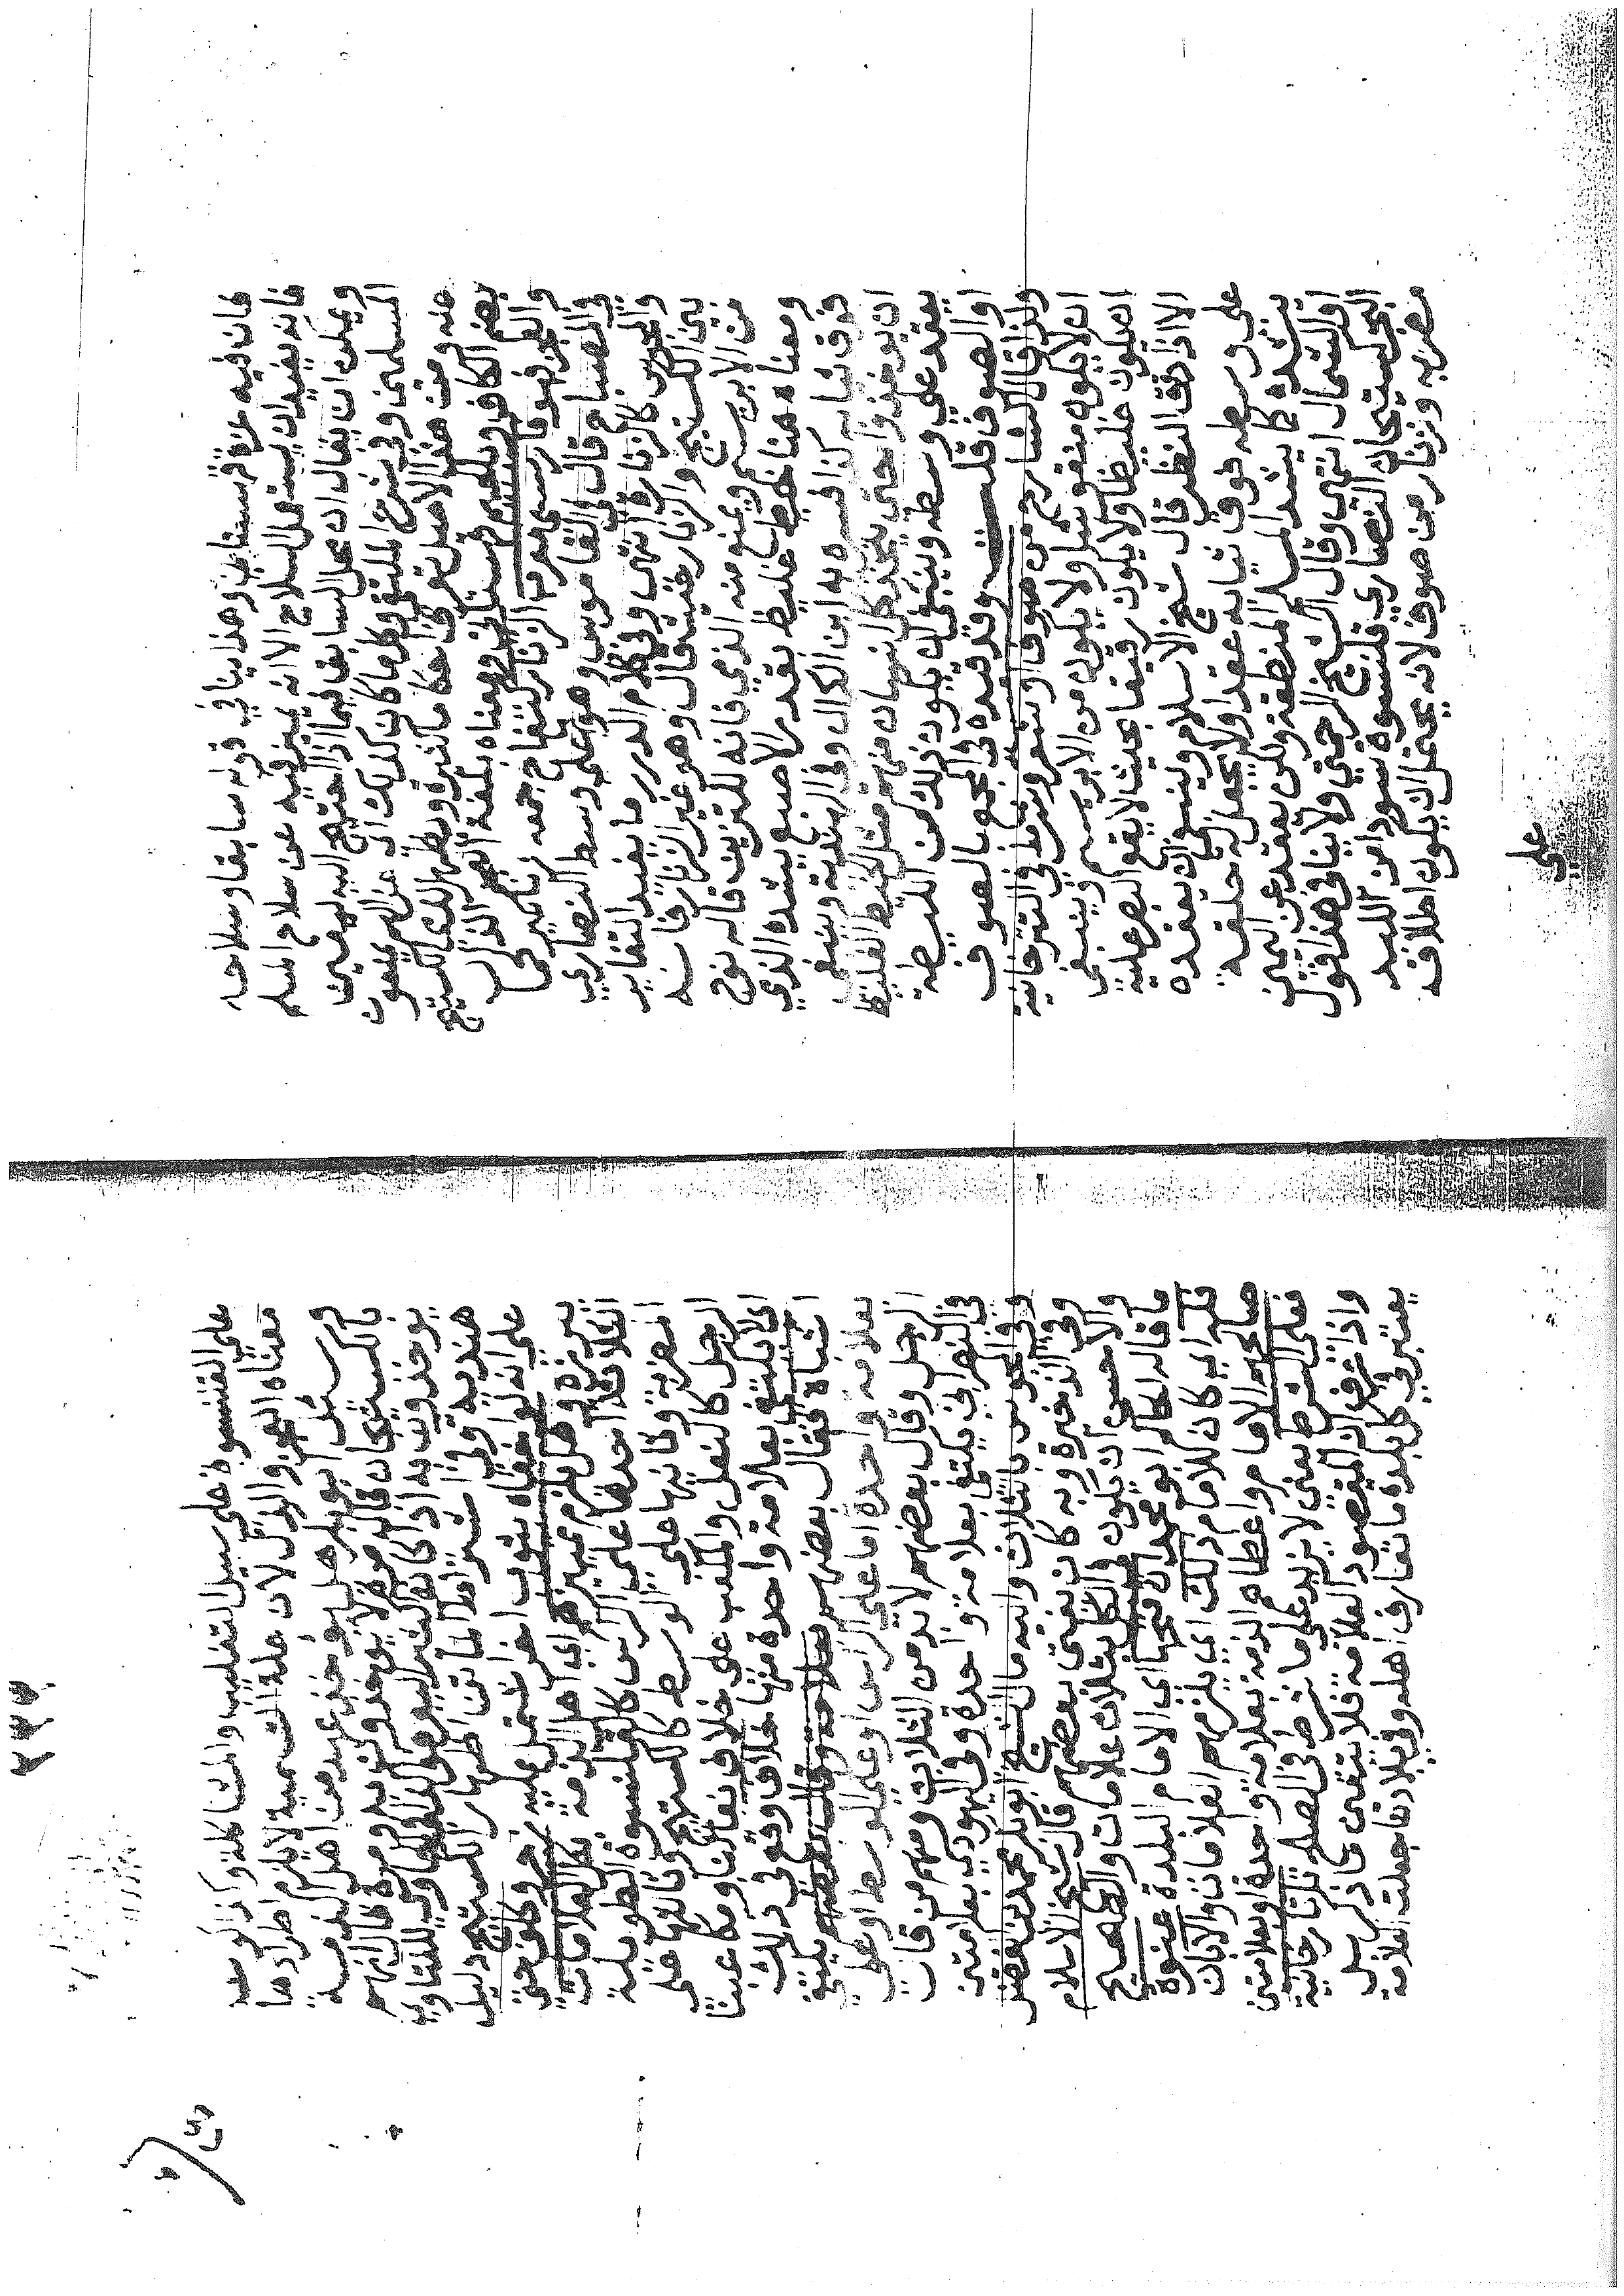 فان فيه وهذا ينافي قوله سابقا وسلاحه
فانه يفيد ان يستعمل السلاح الا انه يميز فيه عن سلاح المسلم
ويمكن ان يقال ان محل السابق فيما اذا احتيج اليه
المسلمين وفي شرح الملتقى وكل ما كان كذلك اي عز لهم يمنعون
عنه ومن هذا الاصل تعرف احكام كثيرة ويظهر الذمي الكستيج
بضم الكاف وبالجيم ومعناه بلغة العجم الذل
والعجز فهو فارسي معرب الزنار كتفاح جمعه زنانير كما
في المصباح وقال في القاموس وهو على وسط النصارى
والمجوس كالزنارة انتهى وفي كلام الدرر ما يفيد التغاير
بين الكستيج والزنار حيث قال وهو غير الزنار فانه
من الابريسم ويمنع منه الذمي فانه للتزين قاله نوح
ومعناه هنا خيط غليظ بقدر الاصبع يشده الذمي
فوق ثيابه كذا فسره به ابن الكمال وفي الهندية وينبغي
ان يوخذوا حتى يتخذ كل انسان منهم مثل الخيط الغليظ
يعقد على وسطه وينبغي ان يكون ذلك من
او الصوف قلت وقد قيده في المجمع بالصوف
ولذا قال الشارح من صوف او شعر وشرط في التترخانية
ان لا يكون منقوشا ولا يكون من الابريسم وينبغي
ان يكون غليظا ولا يكون رقيقا بحيث لا يقع البصر عليه
الا اذا دقق النظر قال شيخ الاسلام وينبغي ان يعقده
على وسطه فوق ثيابه عقدا ولا يجعل له حلقة
يشده كما يشد المسلم المنطقة ولكن يعقد عن اليمين
او الشمال انتهى وقال الشيخ الرحمتي ولا ينافي هذا قول
البحر كستيجان النصاري قلنسوة سودا من اللبد
مضربة وزنار من صوف لانه يحتمل ان يكون اطلاقه
على
على القلنسوة على سبيل التغليب والمشاكلة وكذلك
معناه العجز والذل لان علة التسمية لا يلزم اطرادها
وسئل ابو بكر هل يوخذ عبد من اهل الذمة
بالكستيجان قال مرة لا يوخذون به ومرة قال انهم
يوخذون به اذا كان
هندية وفي اشتراط اظهار الكستيج دليل
على انه لو اخفاه بثوب اخر اشتمل عليه
وهل يلزم تمييزهم اي اهل الذمة بكل العلامات
الثلاثة احدها على الراس كالقلنسوة الطويلة
المضربة وثانيها على الوسط كالكستيج وثالثها على
الرجل كالنعل والمكعب على خلاف نعالنا ومكاعبنا
او يكتفى بعلامة واحدة منها خلاف وقع في ذلك
فقال بعضهم يكتفى
بعلامة واحدة اما على الراس او على الوسط او على
الرجل وقال بعضهم لا بد من الثلاث ومنهم من قال
في النصراني يكتفى بعلامة واحدة وفي اليهودي بعلامتين
وفي المجوسي بالثلاث واليه مال الشيخ ابو بكر محمد بن الفضل
وفي الذخيرة وبه كان يفتي بعضهم قال شيخ الاسلام
والاحسن ان يكون في الكل ثلاث علامات والصحيح
ما قاله الحاكم ابو محمد ان فتحها اي الامام البلدة عنوة
فله اي كان للامام ذلك اي يلزمهم العلامات والا بان
صالحهم الامام واعطاهم الذمة بعلامة واحدة او بعلامتين
فعلى الشرط يعني لا يزيد على ما شرط في الصلح تترخانية
واذا عرف ان المقصود العلامة فلا يتعين ما ذكر بل
يعتبر في كل بلدة ما تعارف اهله وفي بلادنا جعلت العلامة